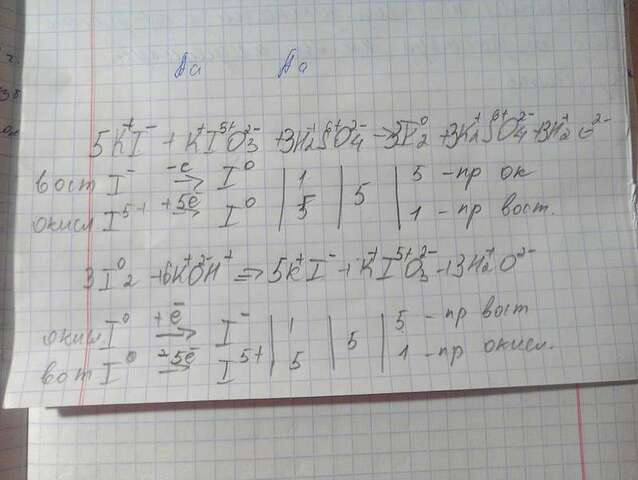 Да Да
5K⁺I⁻ + K⁺I⁵⁺O₃²⁻ + 3H₂⁺S⁶⁺O₄²⁻ → 3I₂⁰ + 3K₂⁺S⁶⁺O₄²⁻ + 3H₂⁺O²⁻
вост I⁻ –e → I⁰ | 1 | 5 | 5 – пр ок
окисл I⁵⁺ +5e̅ → I⁰ | 5 | | 1 – пр вост.
3I₂⁰ + 6K⁺O²⁻H⁺ => 5K⁺I⁻ + K⁺I⁵⁺O₃²⁻ + 3H₂⁺O²⁻
окисл I⁰ +e̅ → I⁻ | 1 | 5 | 5 – пр вост
вот I⁰ –5e̅ → I⁵⁺ | 5 | | 1 – пр окисл.